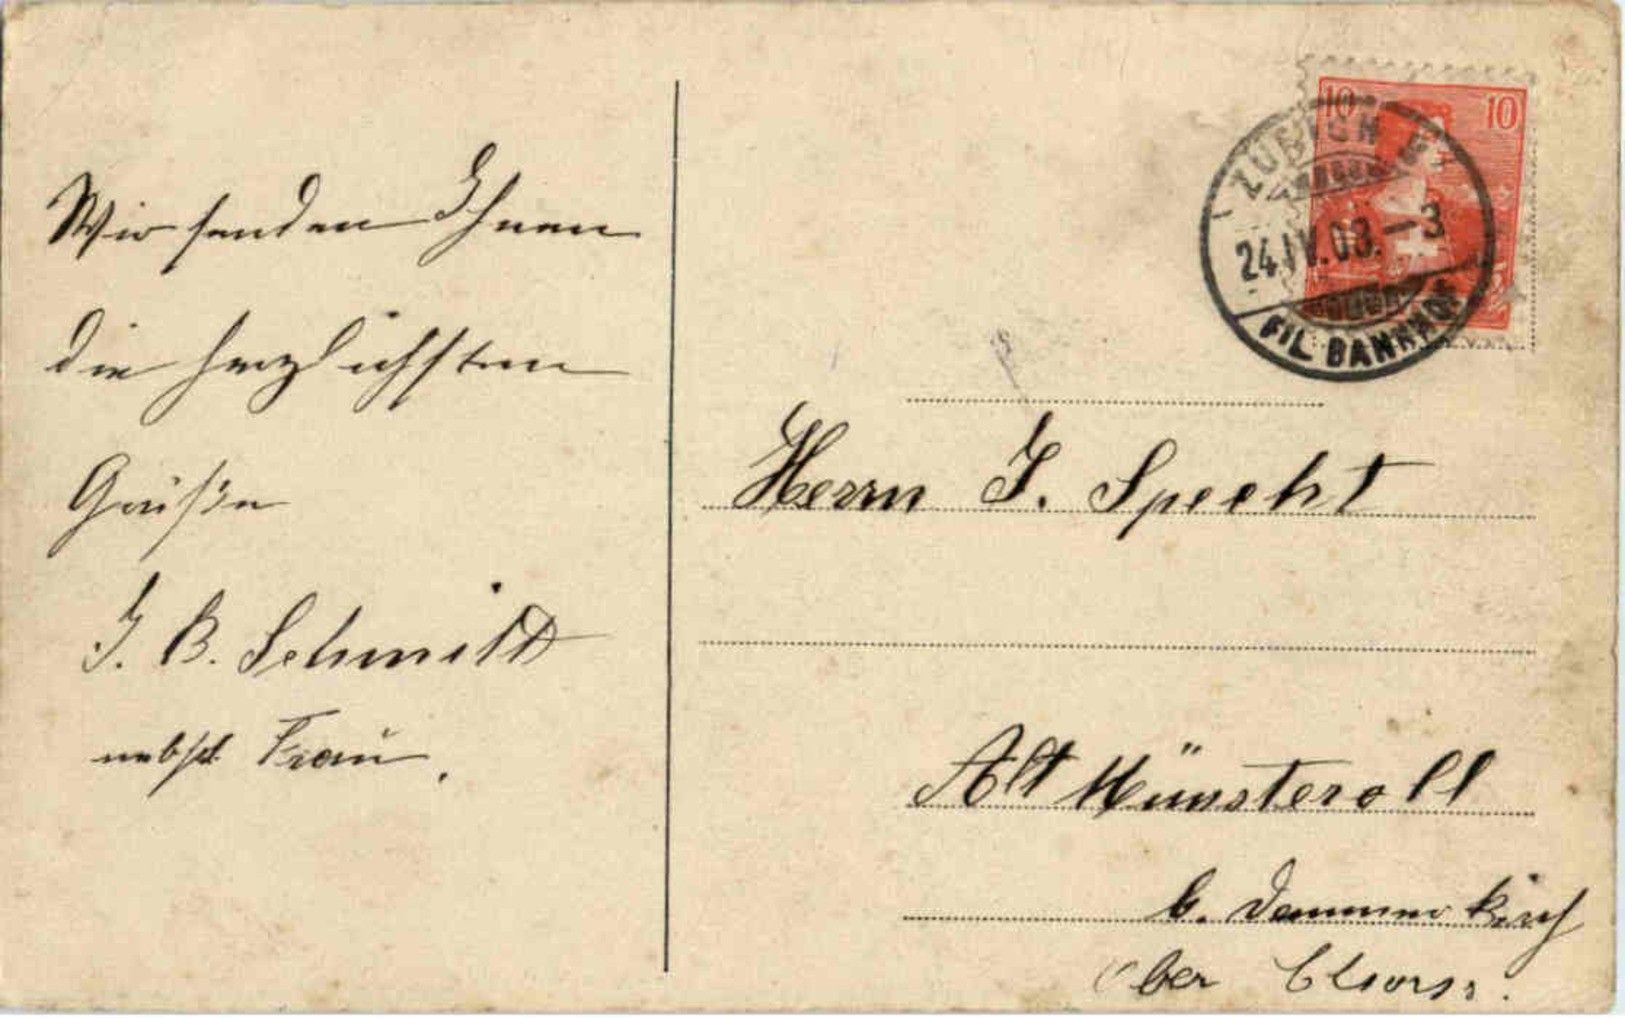 Wir senden Ihnen
die herzlichsten
Grüße
J. B. Schmitt
nebst Frau.
10 10
ZÜRICH
24.IV.08.–3
FIL. BAHNHOF
Herrn J. Specht
Alt Münsteroll
b. Dammerkirch
Ober Elsass.